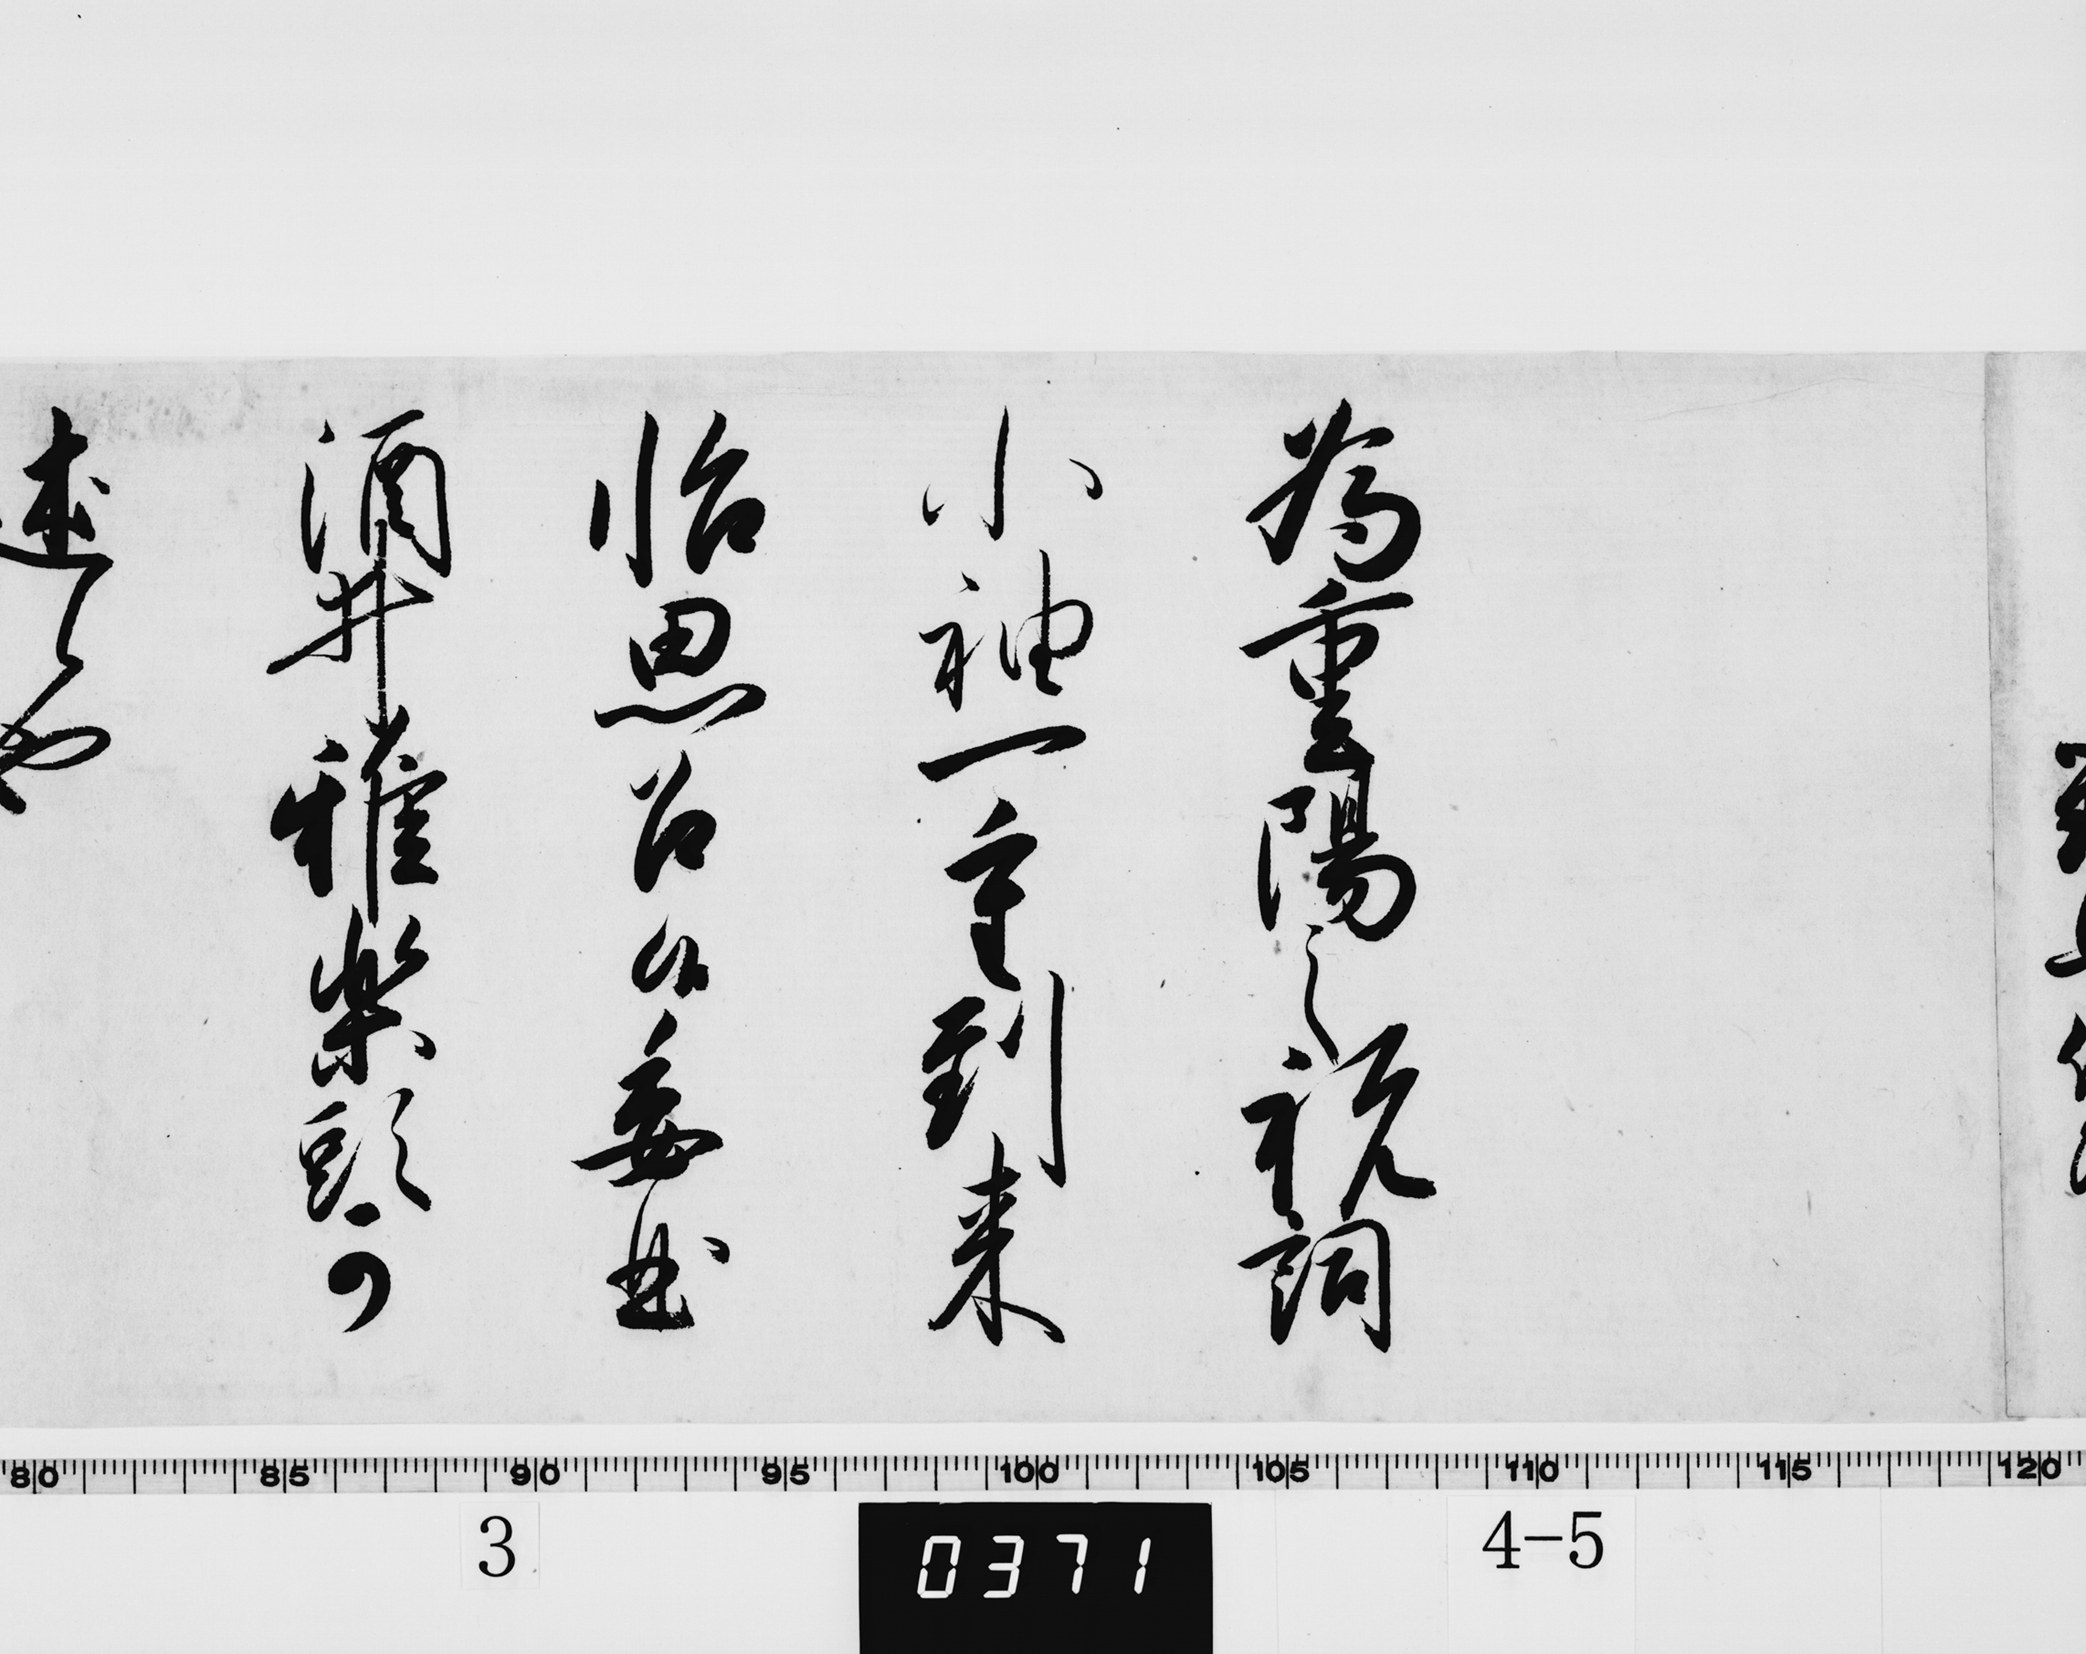 為重陽之祝詞
小袖一重到来
怡思召候委曲
酒井雅楽頭可
述候也
80 85 90 95 100 105 110 115 120
3
0371
4-5